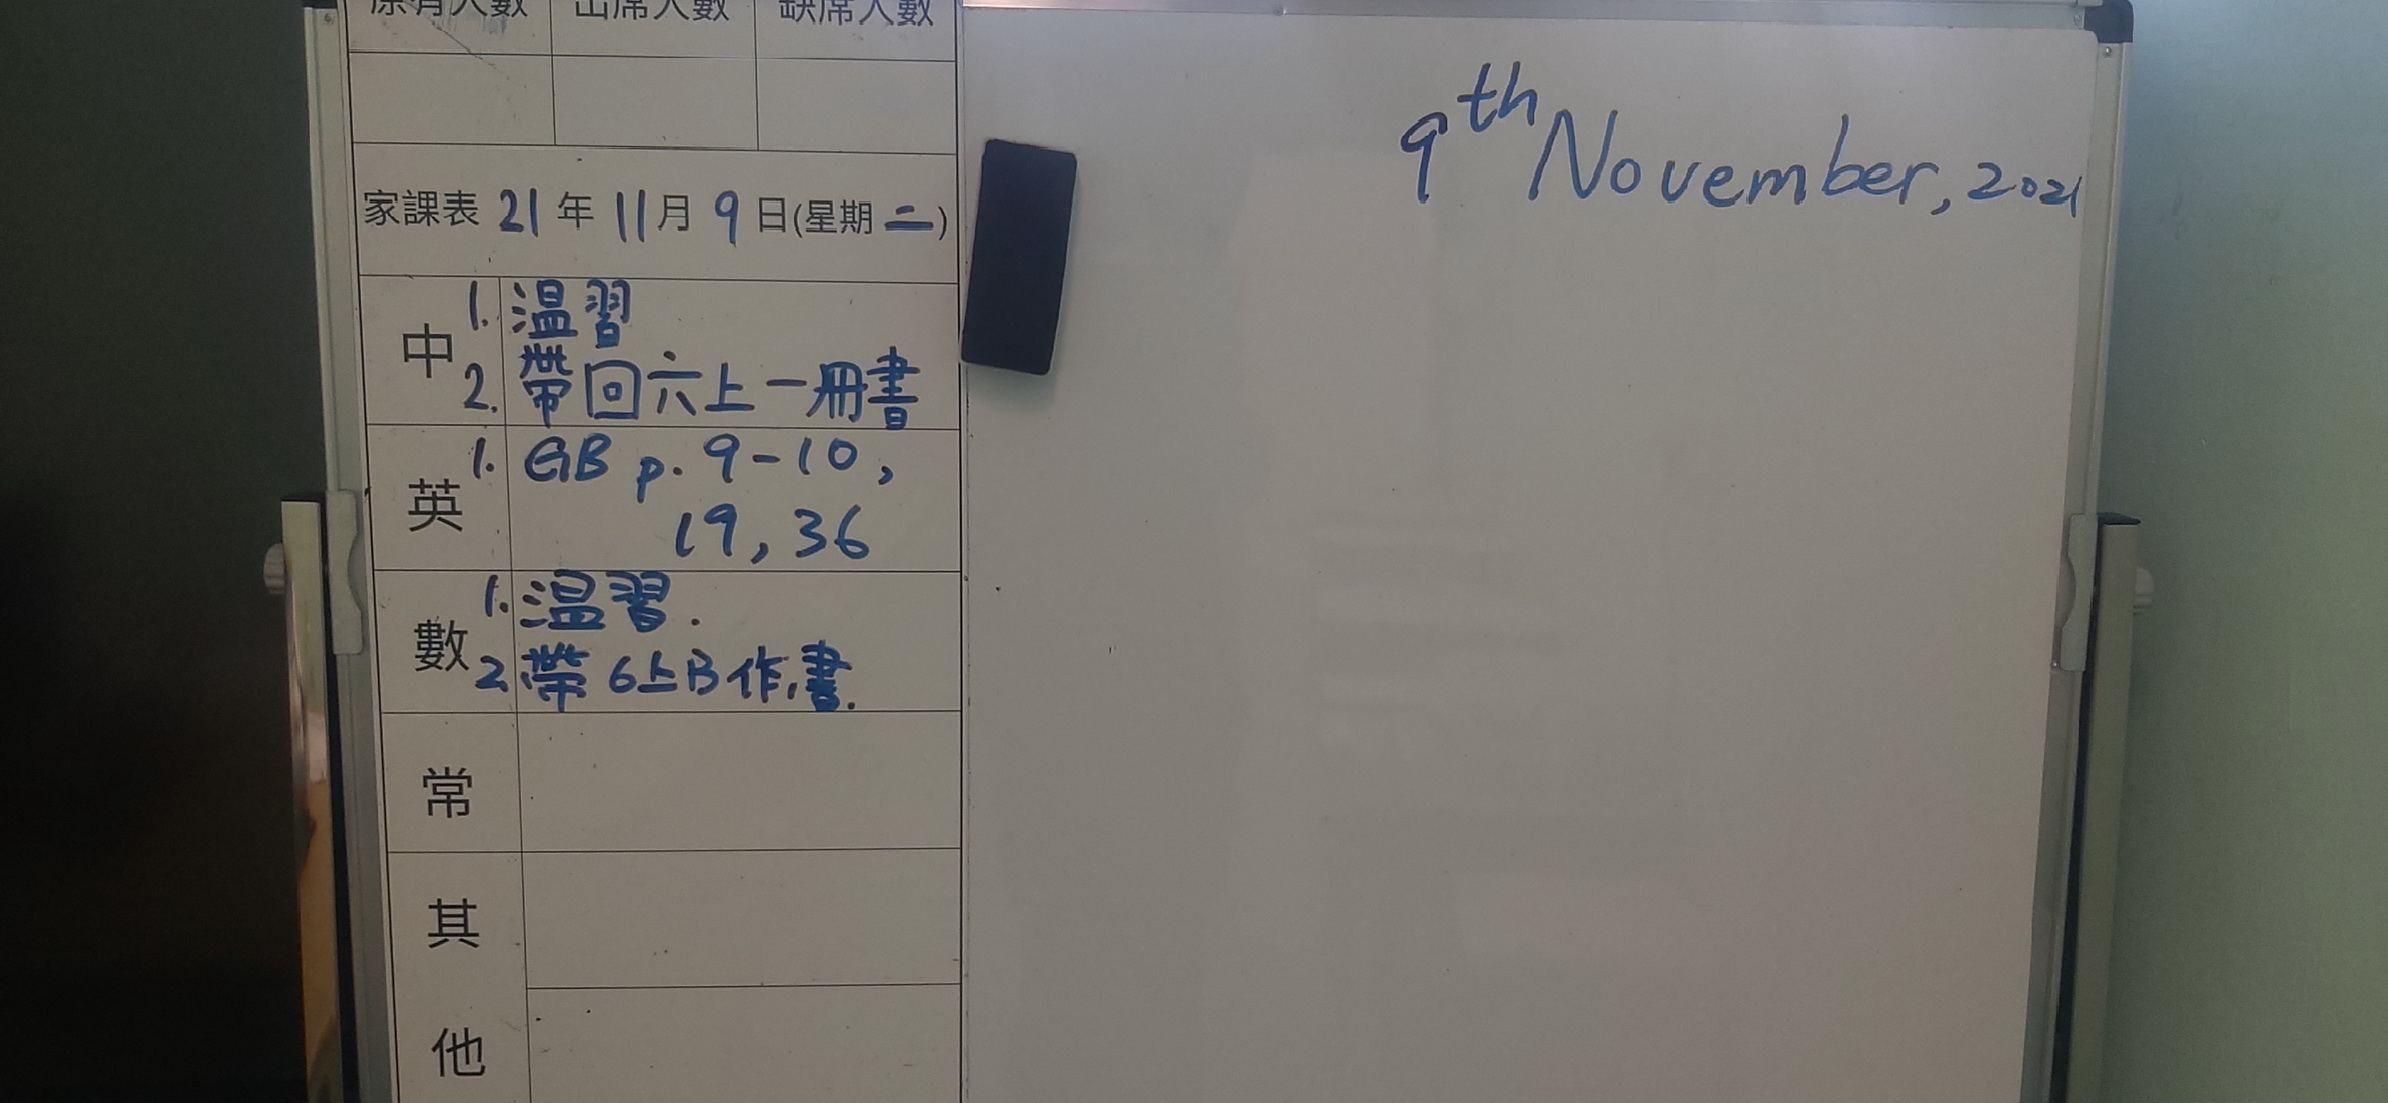 原有人數 出席人數 缺席人數
家課表 21年 11月 9日(星期二)
中 1. 温習
2. 帶回六上一冊書
英 1. GB p. 9-10,
19, 36
數 1. 温習.
2. 帶6上B作書.
常
其
他
9th November, 2021